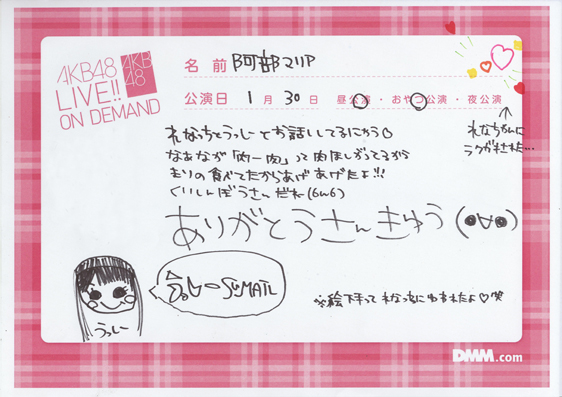 AKB48
LIVE!!
ON DEMAND
AKB
48
名前 阿部マリア
公演日 1月30日 昼公演・おやつ公演・夜公演
れなちゃんに
ラクガキされた…
れなっちとうっしーとお話ししてるにから♡
なぁなが「肉ー肉」って肉ほしがってるから
まりの食べてたからあげあげたよ!!!
くいしんぼうさんだね(6ω6)
ありがとうさんきゅう(●∀●)
SUMAIL
うっしー
※絵下手ってれなっちにゆわれたよ♡笑
DMM.com